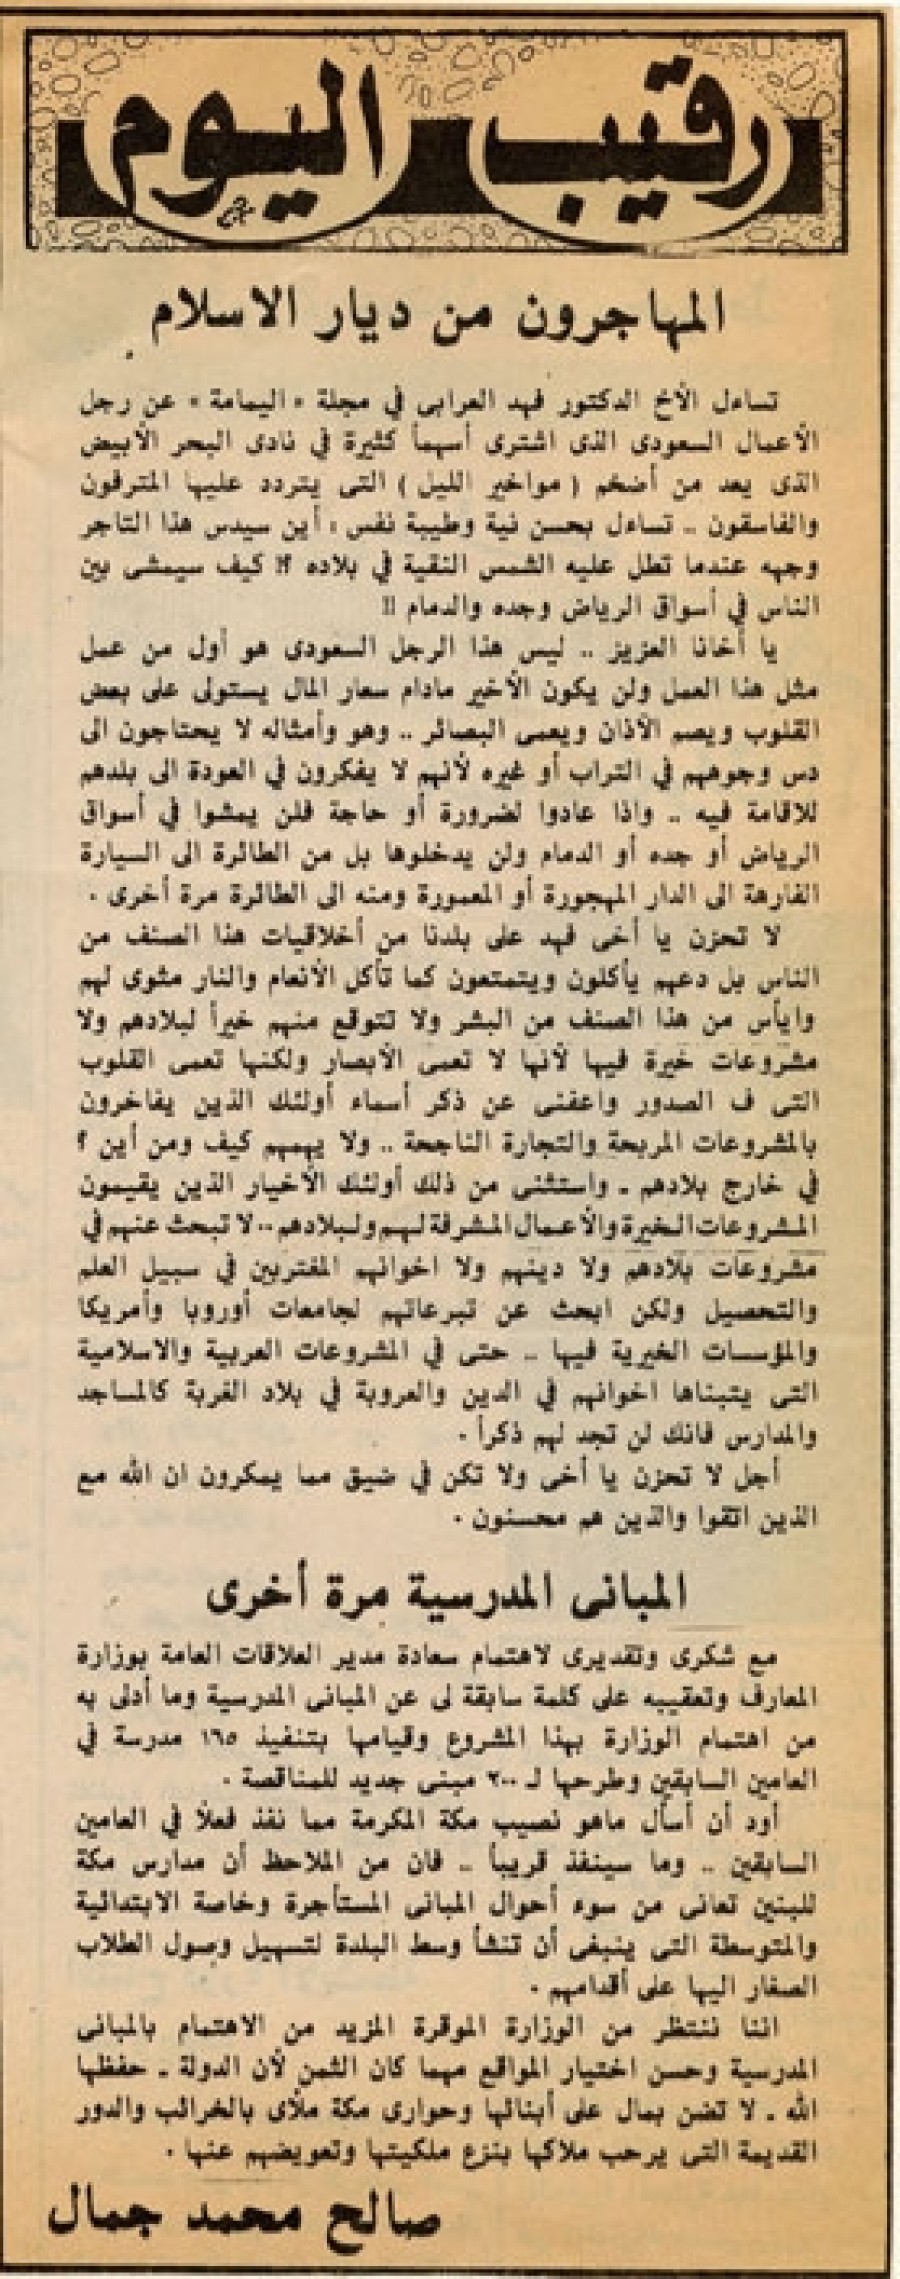 رقيب اليوم
المهاجرون من ديار الاسلام
تساءل الأخ الدكتور فهد العرابى في مجلة « اليمامة » عن رجل
الأعمال السعودى الذى اشترى أسهماً كثيرة في نادى البحر الأبيض
الذى يعد من أضخم ( مواخير الليل ) التى يتردد عليها المترفون
والفاسقون .. تساءل بحسن نية وطيبة نفس : أين سيدس هذا التاجر
وجهه عندما تطل عليه الشمس النقية في بلاده ؟! كيف سيمشى بين
الناس في أسواق الرياض وجده والدمام !!
يا أخانا العزيز .. ليس هذا الرجل السعودى هو أول من عمل
مثل هذا العمل ولن يكون الأخير مادام سعار المال يستولى على بعض
القلوب ويصم الآذان ويعمى البصائر .. وهو وأمثاله لا يحتاجون الى
دس وجوههم في التراب أو غيره لأنهم لا يفكرون في العودة الى بلدهم
للاقامة فيه .. واذا عادوا لضرورة أو حاجة فلن يمشوا في أسواق
الرياض أو جده أو الدمام ولن يدخلوها بل من الطائرة الى السيارة
الفارهة الى الدار المهجورة أو المعمورة ومنه الى الطائرة مرة أخرى .
لا تحزن يا أخى فهد على بلدنا من أخلاقيات هذا الصنف من
الناس بل دعهم يأكلون ويتمتعون كما تأكل الأنعام والنار مثوى لهم
وايأس من هذا الصنف من البشر ولا تتوقع منهم خيراً لبلادهم ولا
مشروعات خيرة فيها لأنها لا تعمى الأبصار ولكنها تعمى القلوب
التى ف الصدور واعفنى عن ذكر أسماء أولئك الذين يفاخرون
بالمشروعات المربحة والتجارة الناجحة .. ولا يهمهم كيف ومن أين ؟
في خارج بلادهم ـ واستثنى من ذلك أولئك الأخيار الذين يقيمون
المشروعات الخيرة والأعمال المشرفة لهم ولبلادهم .. لا تبحث عنهم في
مشروعات بلادهم ولا دينهم ولا اخوانهم المغتربين في سبيل العلم
والتحصيل ولكن ابحث عن تبرعاتهم لجامعات أوروبا وأمريكا
والمؤسسات الخيرية فيها .. حتى في المشروعات العربية والاسلامية
التى يتبناها اخوانهم في الدين والعروبة في بلاد الغربة كالمساجد
والمدارس فانك لن تجد لهم ذكراً .
أجل لا تحزن يا أخى ولا تكن في ضيق مما يمكرون ان الله مع
الذين اتقوا والذين هم محسنون .
المبانى المدرسية مرة أخرى
مع شكرى وتقديرى لاهتمام سعادة مدير العلاقات العامة بوزارة
المعارف وتعقيبه على كلمة سابقة لى عن المبانى المدرسية وما أدلى به
من اهتمام الوزارة بهذا المشروع وقيامها بتنفيذ ١٦٥ مدرسة في
العامين السابقين وطرحها لـ ٢٠٠ مبنى جديد للمناقصة .
أود أن أسأل ماهو نصيب مكة المكرمة مما نفذ فعلاً في العامين
السابقين .. وما سينفذ قريباً .. فان من الملاحظ أن مدارس مكة
للبنين تعانى من سوء أحوال المبانى المستأجرة وخاصة الابتدائية
والمتوسطة التى ينبغى أن تنشأ وسط البلدة لتسهيل وصول الطلاب
الصغار اليها على أقدامهم .
اننا ننتظر من الوزارة الموقرة المزيد من الاهتمام بالمبانى
المدرسية وحسن اختيار المواقع مهما كان الثمن لأن الدولة ـ حفظها
الله ـ لا تضن بمال على أبنائها وحوارى مكة ملأى بالخرائب والدور
القديمة التى يرحب ملاكها بنزع ملكيتها وتعويضهم عنها .
صالح محمد جمال